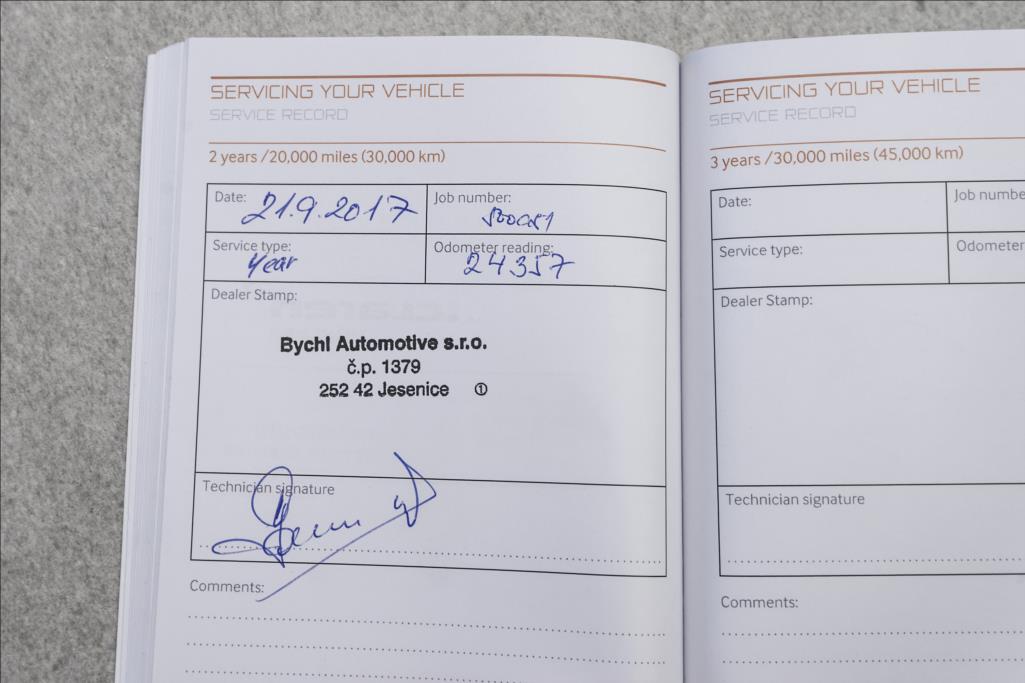 SERVICING YOUR VEHICLE
SERVICE RECORD
2 years /20,000 miles (30,000 km)
Date: 21.9.2017
Job number:
Service type: Year
Odometer reading: 24357
Dealer Stamp:
Bychl Automotive s.r.o.
č.p. 1379
252 42 Jesenice ①
Technician signature
Comments:
SERVICING YOUR VEHICLE
SERVICE RECORD
3 years /30,000 miles (45,000 km)
Date:
Job numbe
Service type:
Odometer
Dealer Stamp:
Technician signature
Comments: